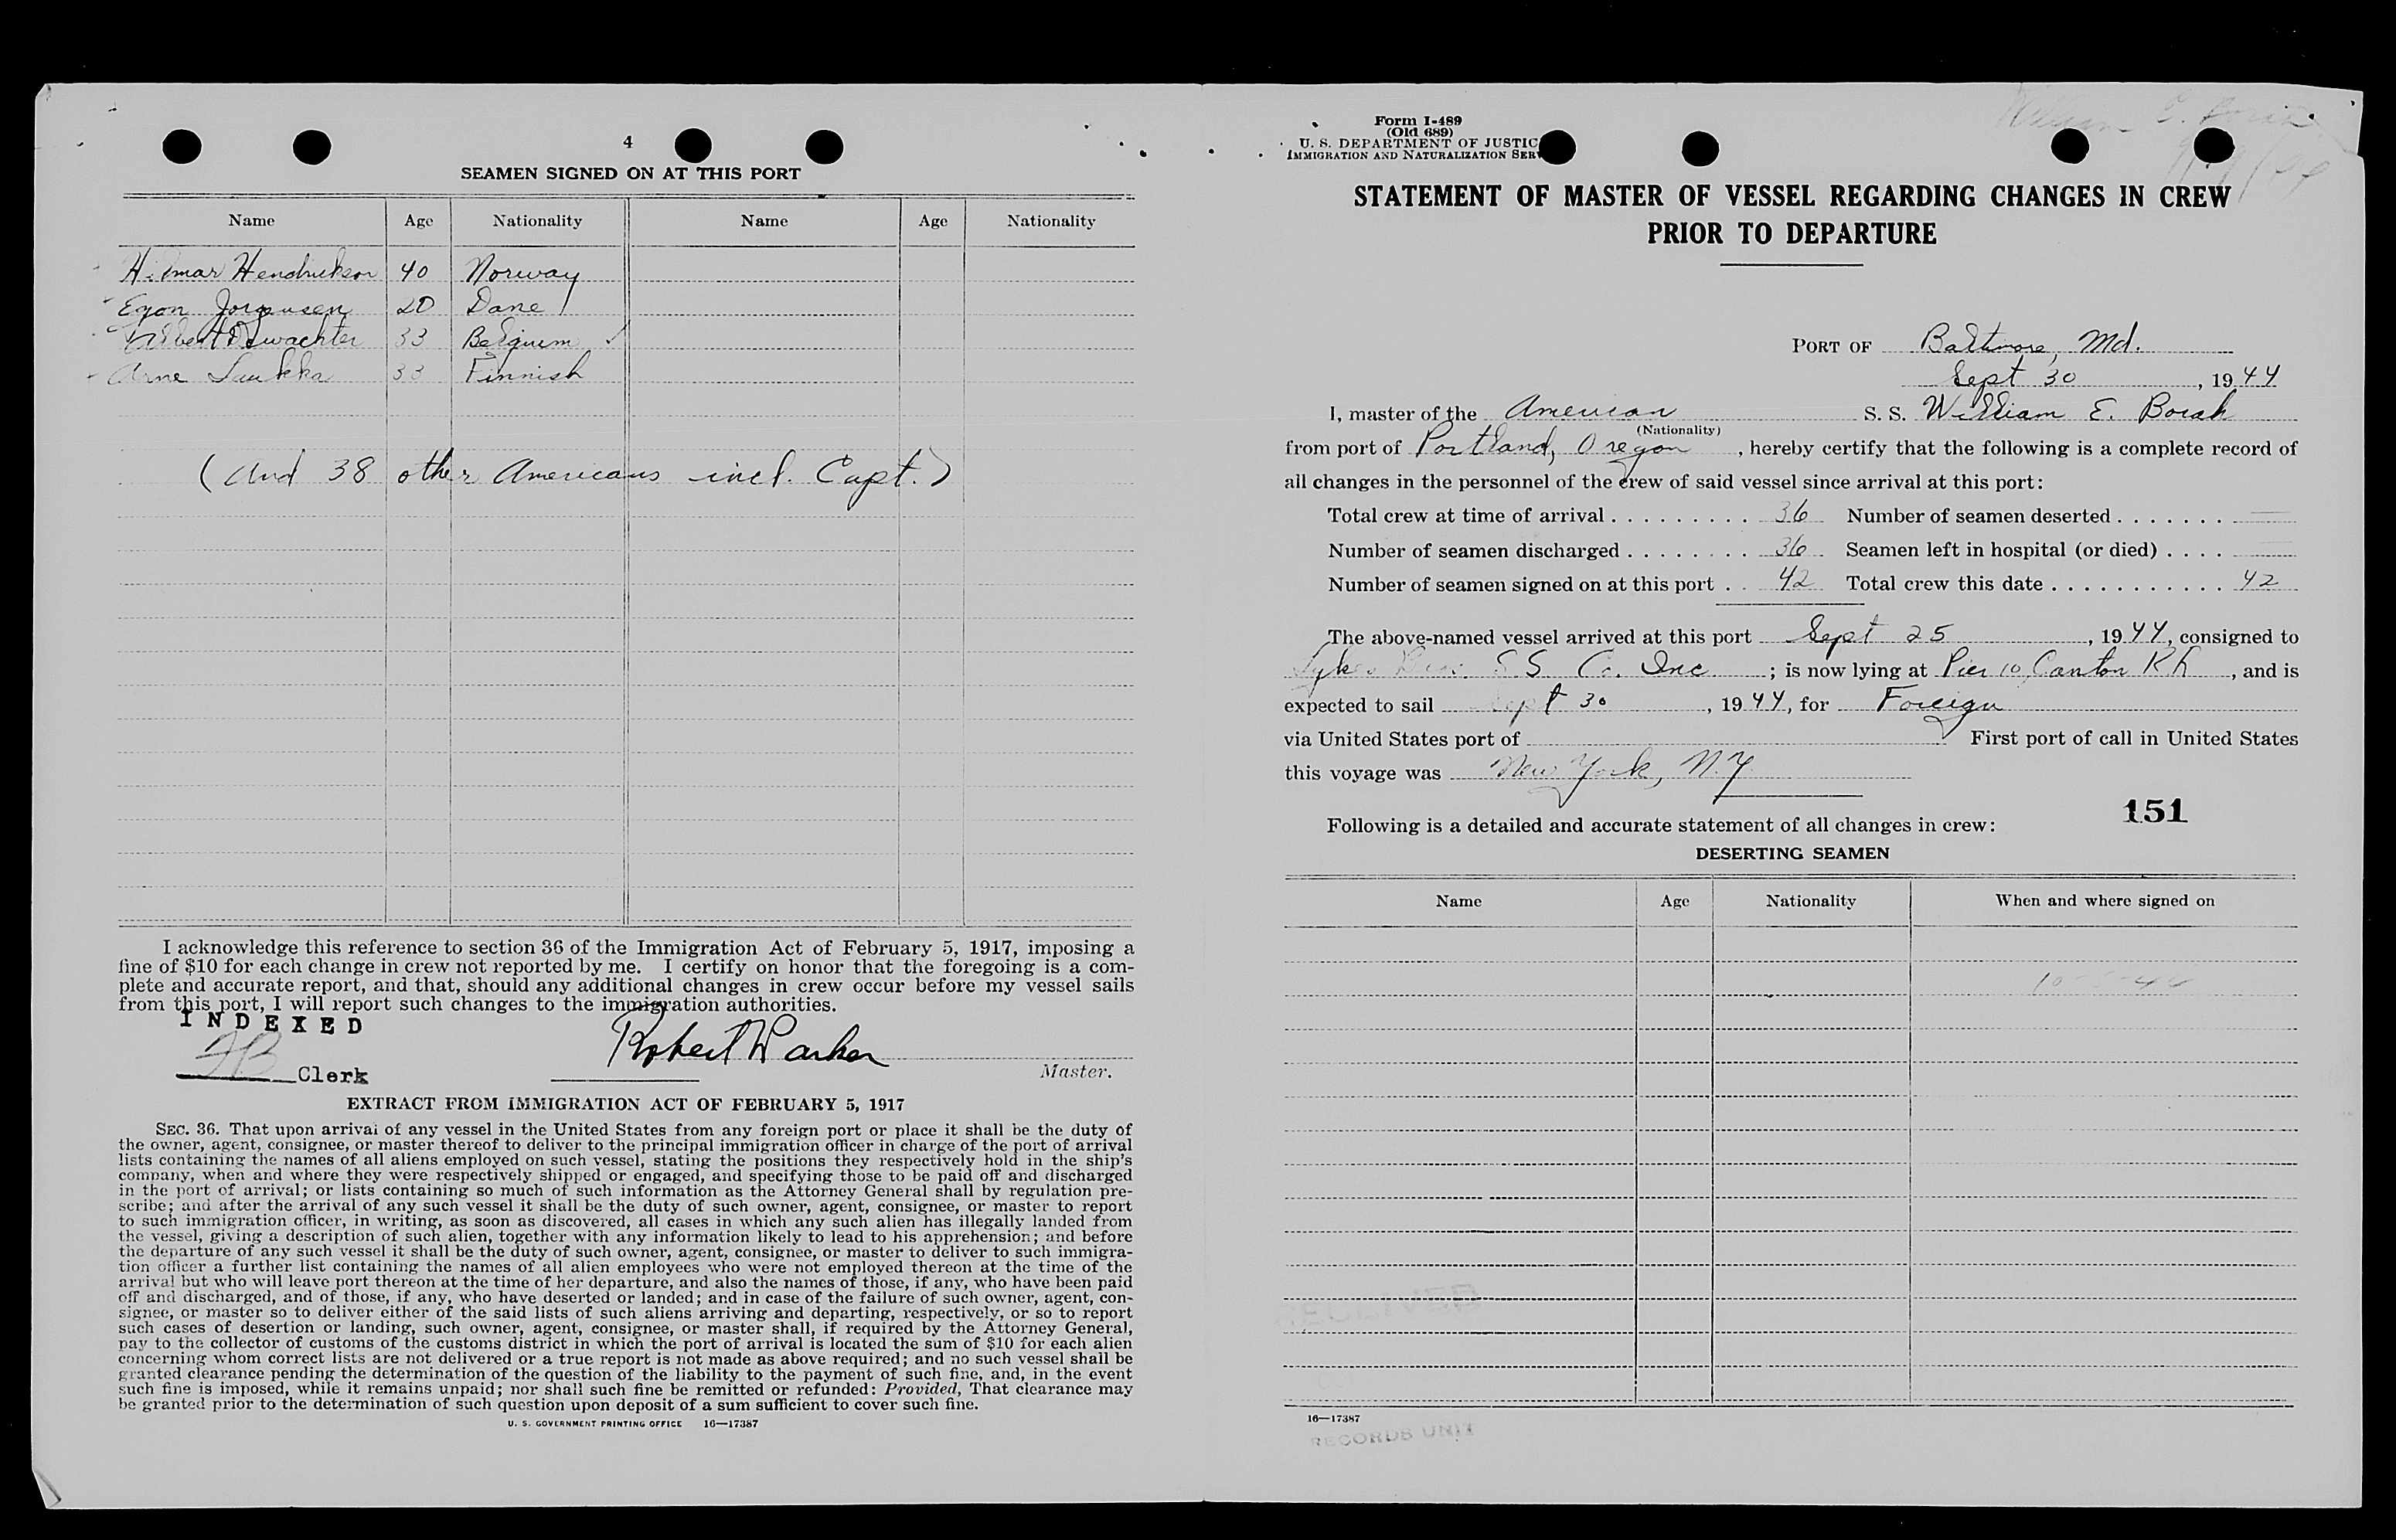 4
SEAMEN SIGNED ON AT THIS PORT
Name Age Nationality Name Age Nationality
Hilmar Hendrickson 40 Norway
Egon Jorgensen 20 Dane
Albert Deswachter 33 Belgium ✓
Arne Laukka 33 Finnish
(And 38 other Americans incl. Capt.)
I acknowledge this reference to section 36 of the Immigration Act of February 5, 1917, imposing a
fine of $10 for each change in crew not reported by me. I certify on honor that the foregoing is a com-
plete and accurate report, and that, should any additional changes in crew occur before my vessel sails
from this port, I will report such changes to the immigration authorities.
INDEXED
Robert Parker
Clerk
Master.
EXTRACT FROM IMMIGRATION ACT OF FEBRUARY 5, 1917
SEC. 36. That upon arrival of any vessel in the United States from any foreign port or place it shall be the duty of
the owner, agent, consignee, or master thereof to deliver to the principal immigration officer in charge of the port of arrival
lists containing the names of all aliens employed on such vessel, stating the positions they respectively hold in the ship's
company, when and where they were respectively shipped or engaged, and specifying those to be paid off and discharged
in the port of arrival; or lists containing so much of such information as the Attorney General shall by regulation pre-
scribe; and after the arrival of any such vessel it shall be the duty of such owner, agent, consignee, or master to report
to such immigration officer, in writing, as soon as discovered, all cases in which any such alien has illegally landed from
the vessel, giving a description of such alien, together with any information likely to lead to his apprehension; and before
the departure of any such vessel it shall be the duty of such owner, agent, consignee, or master to deliver to such immigra-
tion officer a further list containing the names of all alien employees who were not employed thereon at the time of the
arrival but who will leave port thereon at the time of her departure, and also the names of those, if any, who have been paid
off and discharged, and of those, if any, who have deserted or landed; and in case of the failure of such owner, agent, con-
signee, or master so to deliver either of the said lists of such aliens arriving and departing, respectively, or so to report
such cases of desertion or landing, such owner, agent, consignee, or master shall, if required by the Attorney General,
pay to the collector of customs of the customs district in which the port of arrival is located the sum of $10 for each alien
concerning whom correct lists are not delivered or a true report is not made as above required; and no such vessel shall be
granted clearance pending the determination of the question of the liability to the payment of such fine, and, in the event
such fine is imposed, while it remains unpaid; nor shall such fine be remitted or refunded: Provided, That clearance may
be granted prior to the determination of such question upon deposit of a sum sufficient to cover such fine.
U. S. GOVERNMENT PRINTING OFFICE 16—17387
Form I-489
(Old 689)
U. S. DEPARTMENT OF JUSTIC
IMMIGRATION AND NATURALIZATION SERV
William E. Borah
STATEMENT OF MASTER OF VESSEL REGARDING CHANGES IN CREW
PRIOR TO DEPARTURE
PORT OF Baltimore, Md.
Sept 30, 1944
I, master of the American S. S. William E. Borah
(Nationality)
from port of Portland, Oregon, hereby certify that the following is a complete record of
all changes in the personnel of the crew of said vessel since arrival at this port:
Total crew at time of arrival . . . . . . . . . 36 Number of seamen deserted . . . . . . . —
Number of seamen discharged . . . . . . . . 36 Seamen left in hospital (or died) . . . . —
Number of seamen signed on at this port . . 42 Total crew this date . . . . . . . . . . . 42
The above-named vessel arrived at this port Sept 25, 1944, consigned to
Lykes Bros. S.S. Co. Inc.; is now lying at Pier 10, Canton RR, and is
expected to sail Sept 30, 1944, for Foreign
via United States port of First port of call in United States
this voyage was New York, N.Y.
151
Following is a detailed and accurate statement of all changes in crew:
DESERTING SEAMEN
Name Age Nationality When and where signed on
16—17387
RECORDS UNIT